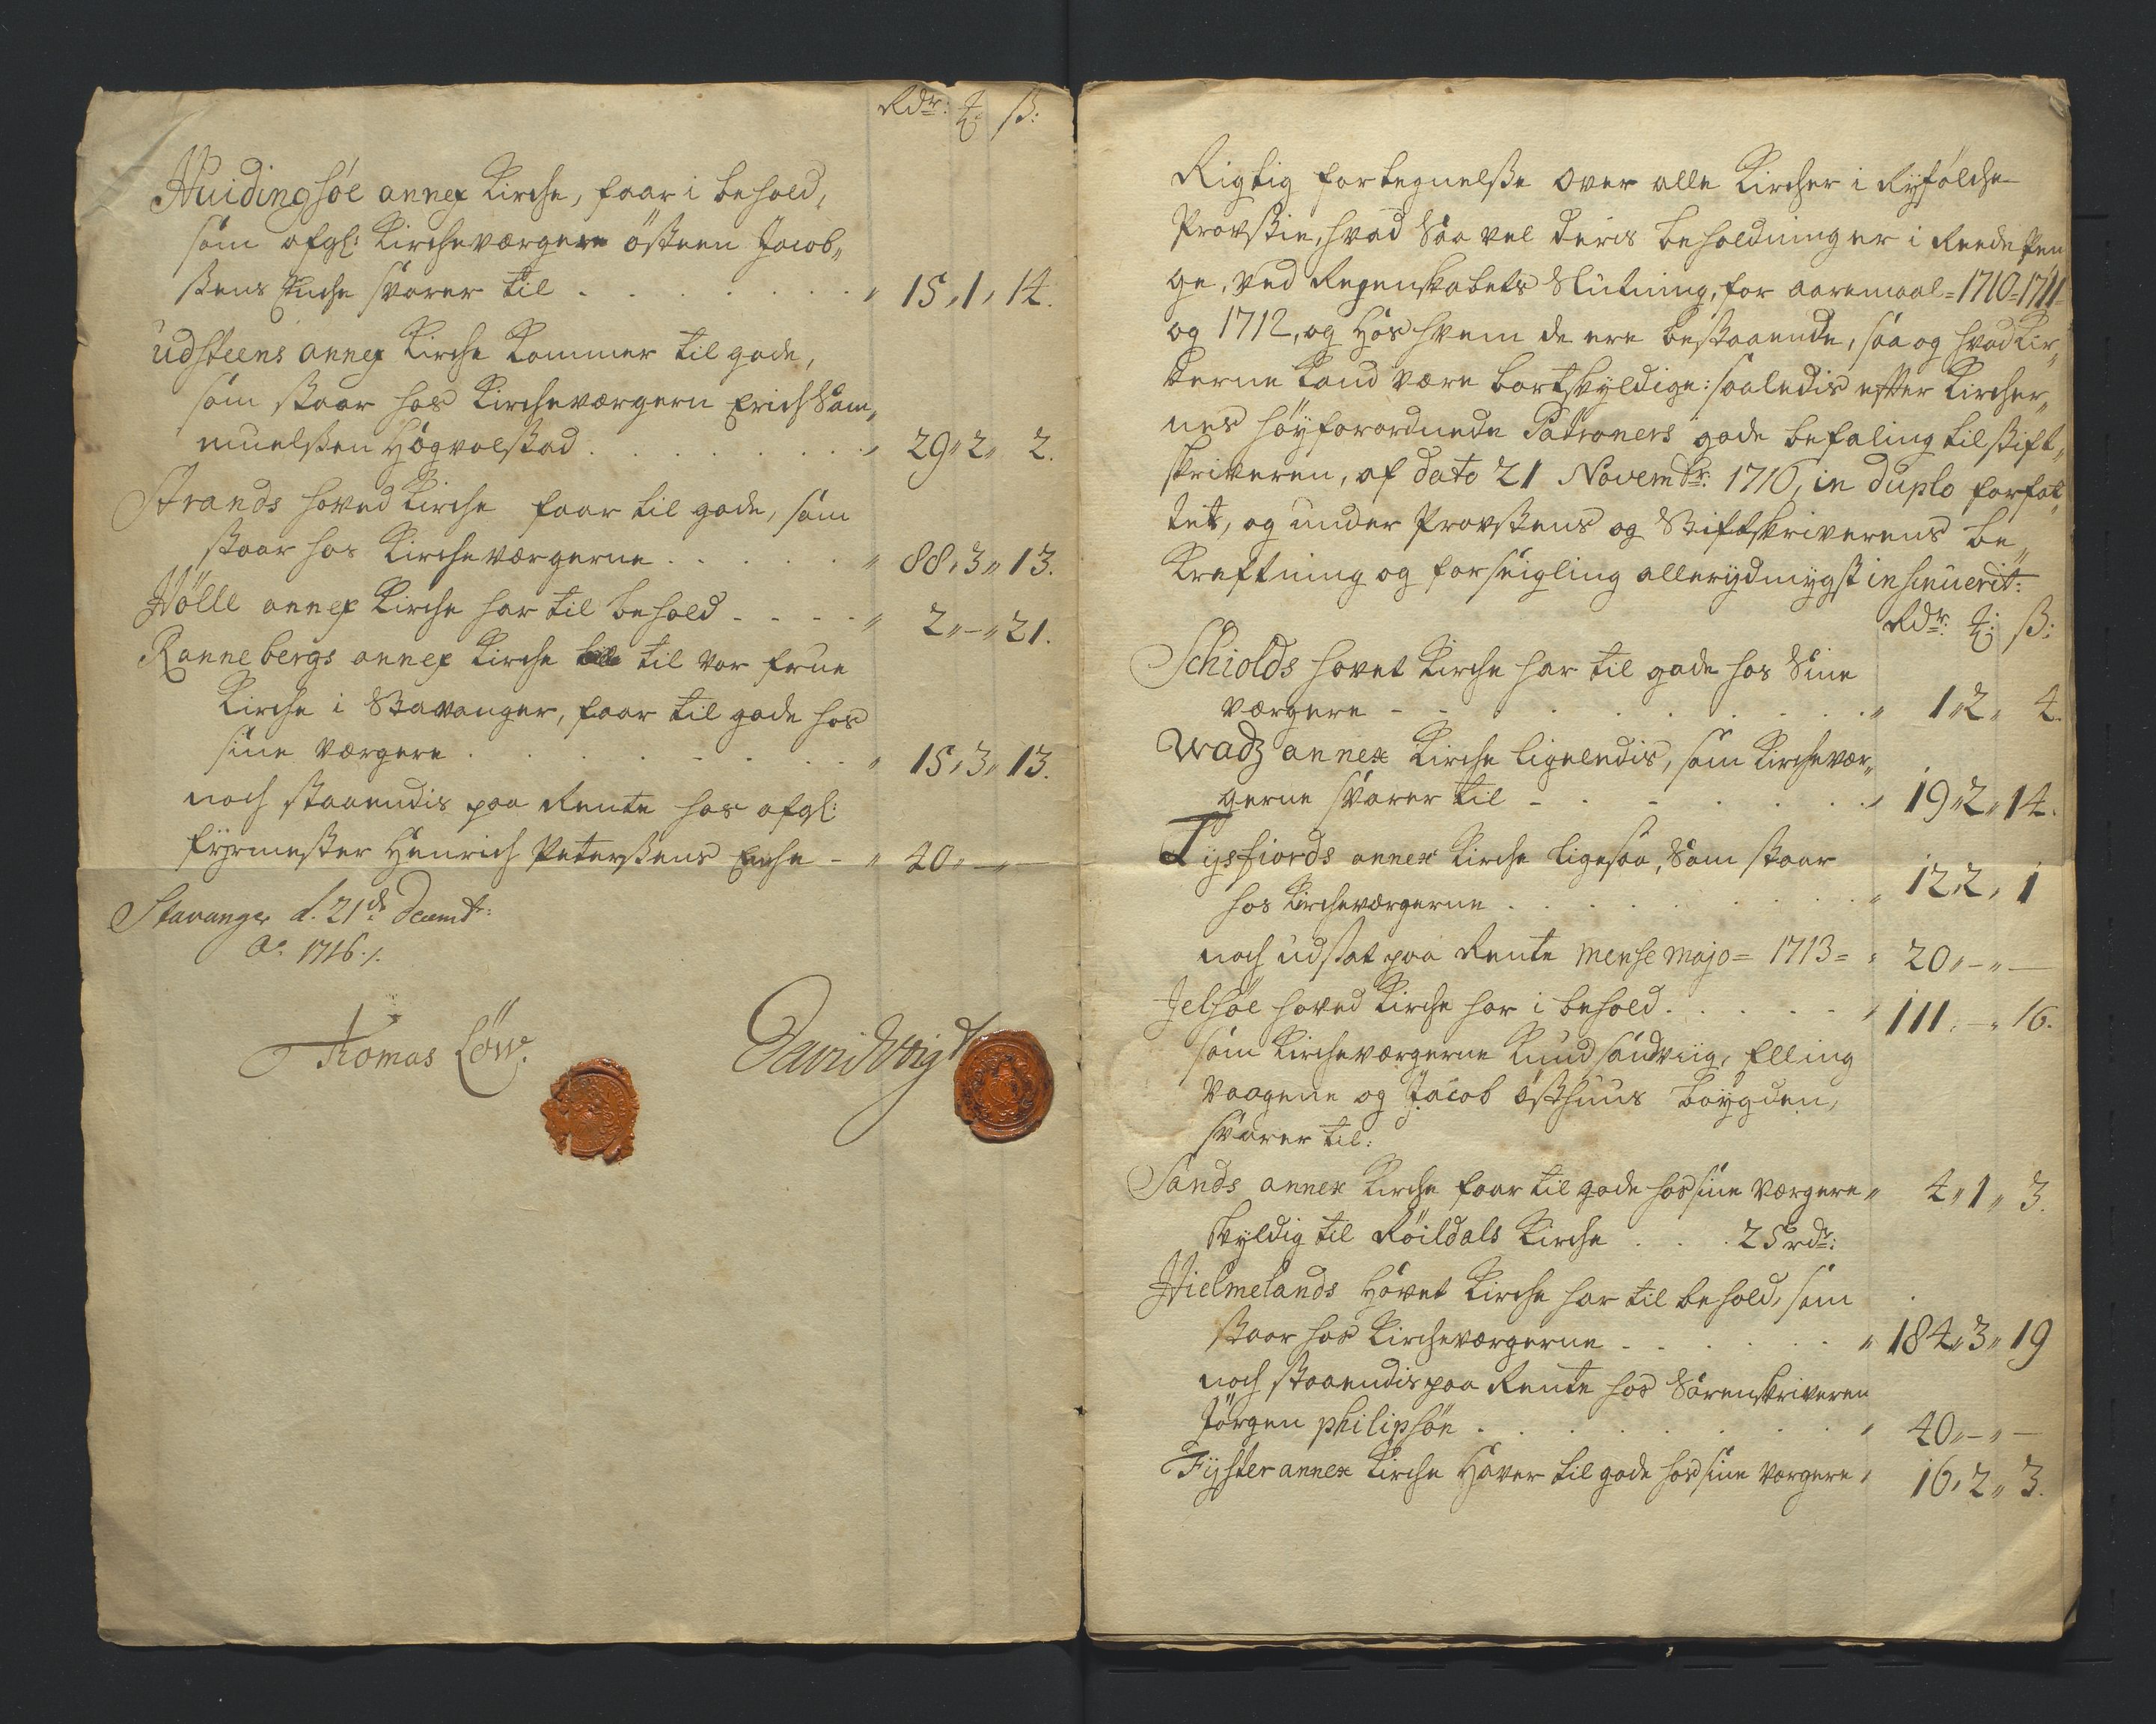 Rdr: ₰: ß:
Huidingsöe annex Kirche, faar i behold,
som afgl: Kircheværgere Østeen Jacob„
ßens Enche svarer til . . . . . . . „ 15„ 1„ 14.
Udsteens annex Kirche kommer til gode,
som staar hos Kircheværgeren Erich Sam„
muelßen Hogvalstad . . . . . . . „ 29„ 2„ 2.
Strands hoved Kirche faar til gode, som
staar hos Kircheværgerne . . . . . „ 88„ 3„ 13.
Hölle annex Kirche har til behold - - - - „ 2„ -„ 21.
Rannebergs annex Kirche til vor frue
Kirche i Stavanger, faar til gode hos
sine værgere . . . . . . . „ 15„ 3„ 13.
noch staaendis paa Rente hos afgl:
fyrmester Henrich Peterßens Enche - „ 40„ -„ -
Stavanger d. 21de Decembr:
Ao 1716./.
Thomas Löw.
David Voigt
Rigtig fortegnelße over alle Kircher i Ryfölche
Provstie, hvad saa vel deris beholdninger i Reede Pen
ge, ved Regenskabets Slutning, for aaremaal = 1710 = 1711
og 1712, og hos hvem de ere bestaaende, saa og hvad Kir„
cherne kand være bortskyldige: saaledis efter Kircher„
nes höyforordnede Patroners gode befaling til stift„
skriveren, af dato 21 Novembr: 1716, in duplo forfat„
tet, og under Provstens og Stiftskriverens be„
kreftning og forseigling allerydmygst insinuerit:
Rdr: ₰: ß:
Schiolds hovet Kirche har til gode hos Sine
værgere - - . . . . . . „ 1„ 2„ 4.
Wadz annex Kirche ligeledis, som Kircheværs„
gerne svarer til - . - . . . . „ 19„ 2„ 14.
Tysfiords annex Kirche ligesaa, Som staar
hos Kircheværgerne . . . . . . . „ 12„ 2„ 1
noch udsat paa Rente mense majo = 1713 = „ 20„ -„ -
Jelsöe hoved Kirche har i behold . . . . . „ 111„ -„ 16.
som Kircheværgerne Knud Sandviig, Elling
Vaagene og Jacob Østhuus Boygden,
svarer til:
Sands annex Kirche faar til gode hos sine værgere „ 4„ 1„ 3.
skyldig til Röildals Kirche . . . 25 rdr:
Hielmelands Hovet Kirche har til behold, som
staar hos Kircheværgerne . . . . . . „ 184„ 3„ 19
noch staaendis paa Rente hos Sorenskriveren
Jörgen Philipsön . . . . . . . „ 40„ -„ -
Fyster annex Kirche Haver til gode hos sine værgere „ 16„ 2„ 3.